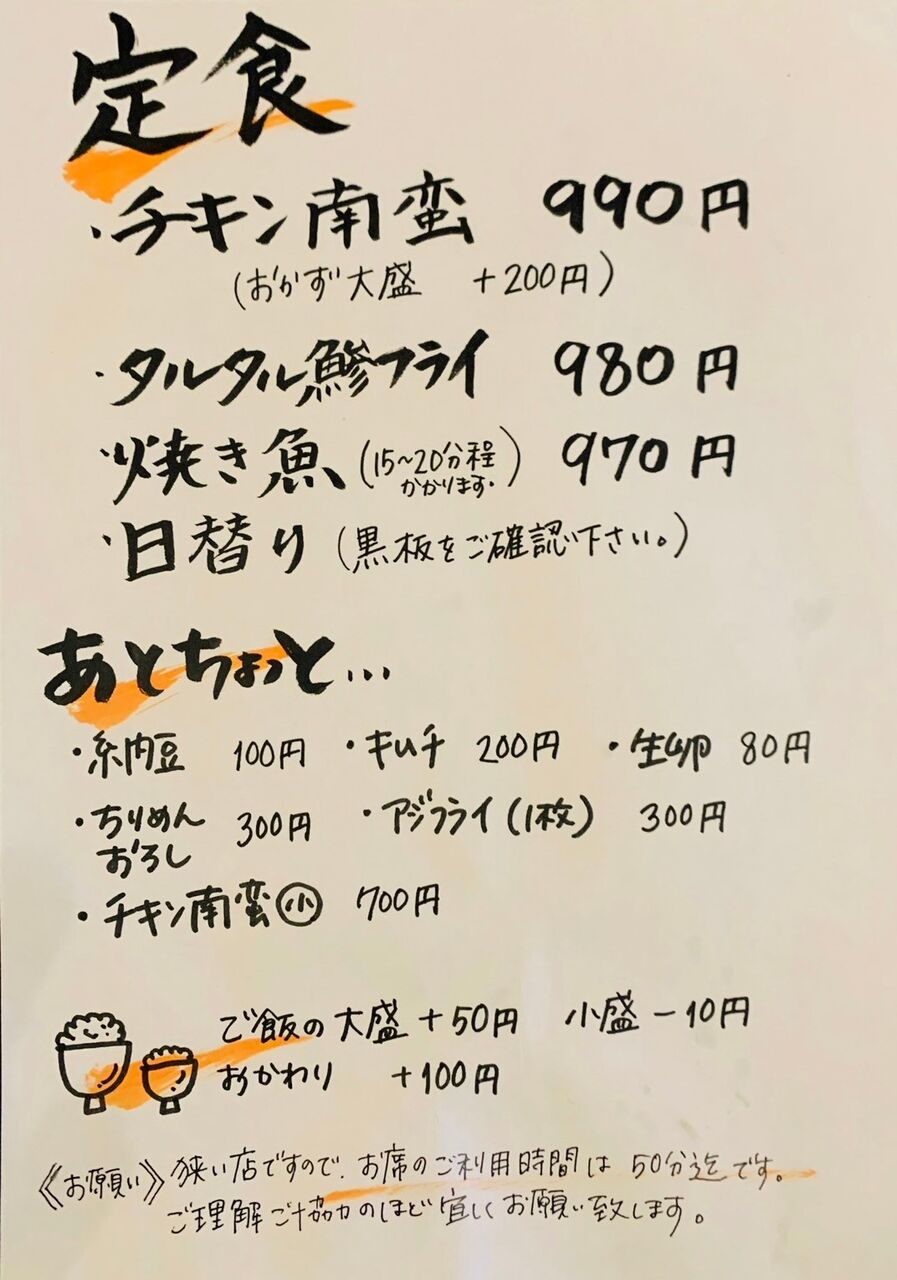 定食
・チキン南蛮 990円
(おかず大盛 +200円)
・タルタル鯵フライ 980円
・焼き魚(15~20分程かかります。) 970円
・日替り(黒板をご確認下さい。)
あとちょっと...
・納豆 100円 ・キムチ 200円 ・生卵 80円
・ちりめんおろし 300円 ・アジフライ(1枚) 300円
・チキン南蛮㊙小 700円
ご飯の大盛+50円 小盛-10円
おかわり +100円
《お願い》狭い店ですので、お席のご利用時間は 50分迄です。
ご理解ご協力のほど宜しくお願い致します。